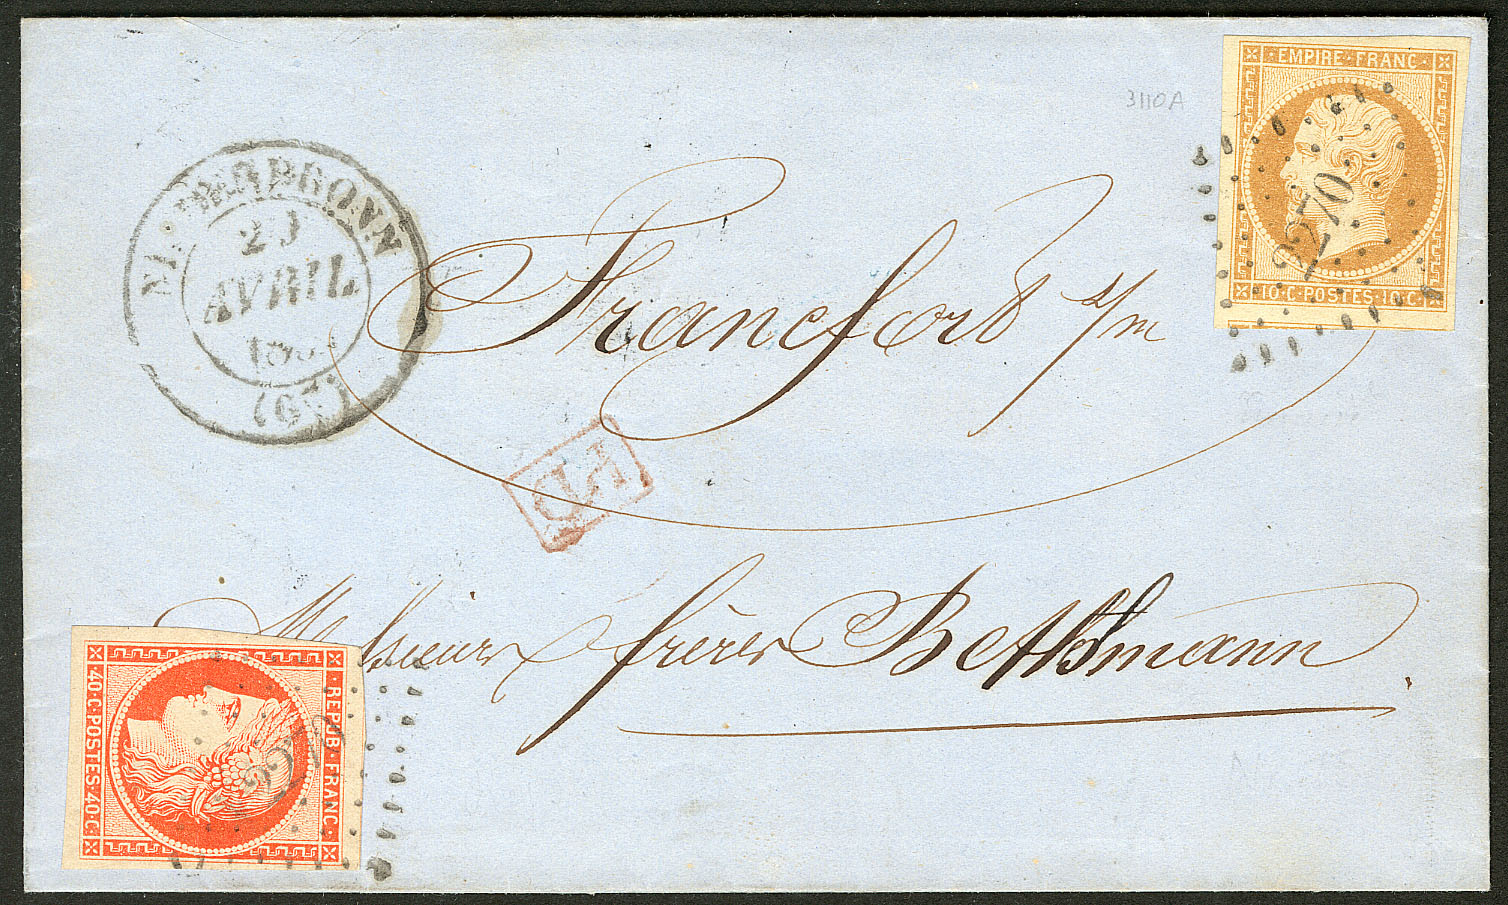 3110A
EMPIRE FRANC
2270
10·C·POSTES·10·C
NIEDERBRONN
23
AVRIL
(67)
Francfort s/m
PD
Messieurs frères Bethmann
REPUB FRANC
40·C·POSTES·40·C
2270